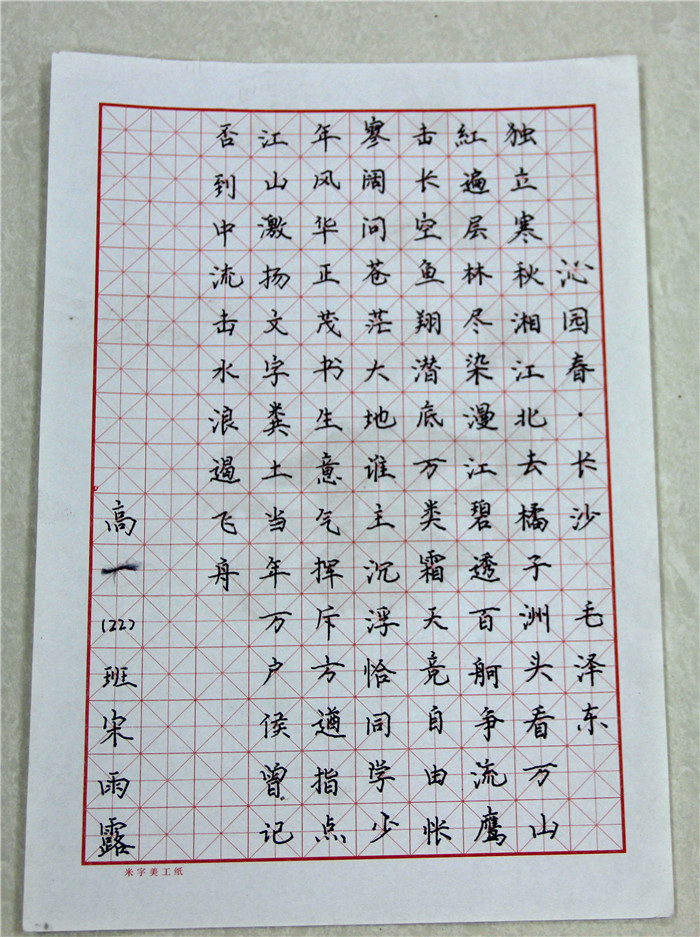 沁园春·长沙 毛泽东
独立寒秋湘江北去橘子洲头看万山
紅遍层林尽染漫江碧透百舸争流鹰
击长空鱼翔潜底万类霜天竟自由怅
寥阔问苍茫大地谁主沉浮恰同学少
年风华正茂书生意气挥斥方遒指点
江山激扬文字粪土当年万户侯曾记
否到中流击水浪遏飞舟
高一(22)班宋雨露
米字美工纸